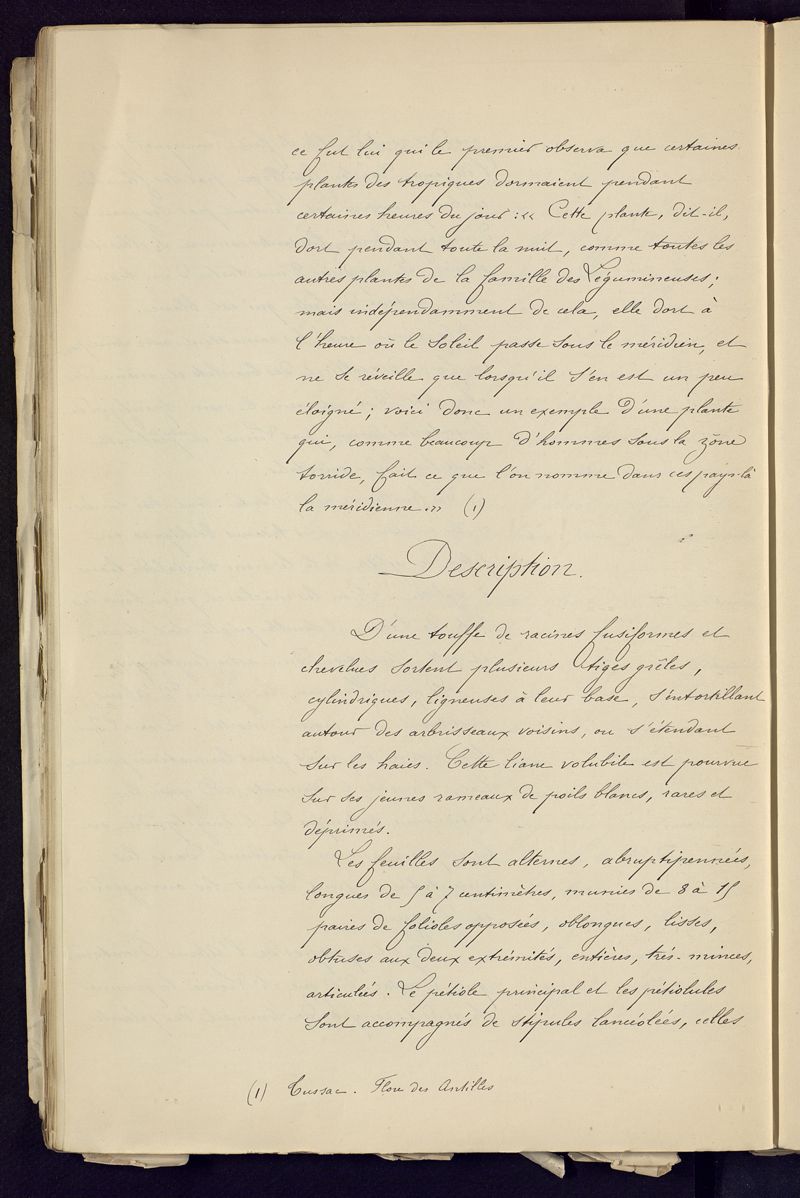 ce fut lui qui le premier observa que certaines
plantes des tropiques dormaient pendant
certaines heures du jour : « Cette plante, dit-il,
dort pendant toute la nuit, comme toutes les
autres plantes de la famille des Légumineuses ;
mais indépendamment de cela, elle dort à
l'heure où le soleil passe sous le méridien, et
ne se réveille que lorsqu'il s'en est un peu
éloigné ; voici donc un exemple d'une plante
qui, comme beaucoup d'hommes sous la zône
torride, fait ce que l'on nomme dans ces pays-là
la méridienne. » (1)
Description.
D'une touffe de racines fusiformes et
chevelues sortent plusieurs tiges grêles,
cylindriques, ligneuses à leur base, s'entortillant
autour des arbrisseaux voisins, ou s'étendant
sur les haies. Cette liane volubile est pourvue
sur ses jeunes rameaux de poils blancs, rares et
déprimés.
Les feuilles sont alternes, abruptipennées,
longues de 5 à 7 centimètres, munies de 8 à 15
paires de folioles opposées, oblongues, lisses,
obtuses aux deux extrémités, entières, très-minces,
articulées. Le pétiole principal et les pétiolules
sont accompagnés de stipules lancéolées, celles
(1) Tussac. Flore des Antilles